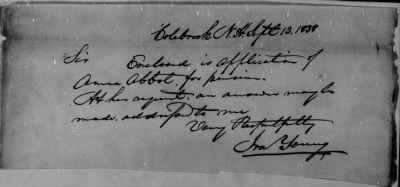 Colebrook N.H. Sept 13. 1838
Sir Enclosed is application of
Anna Abbot. for pension.
At her request. an answer may be
made. addressed to me
Very Respectfully
Ira Young